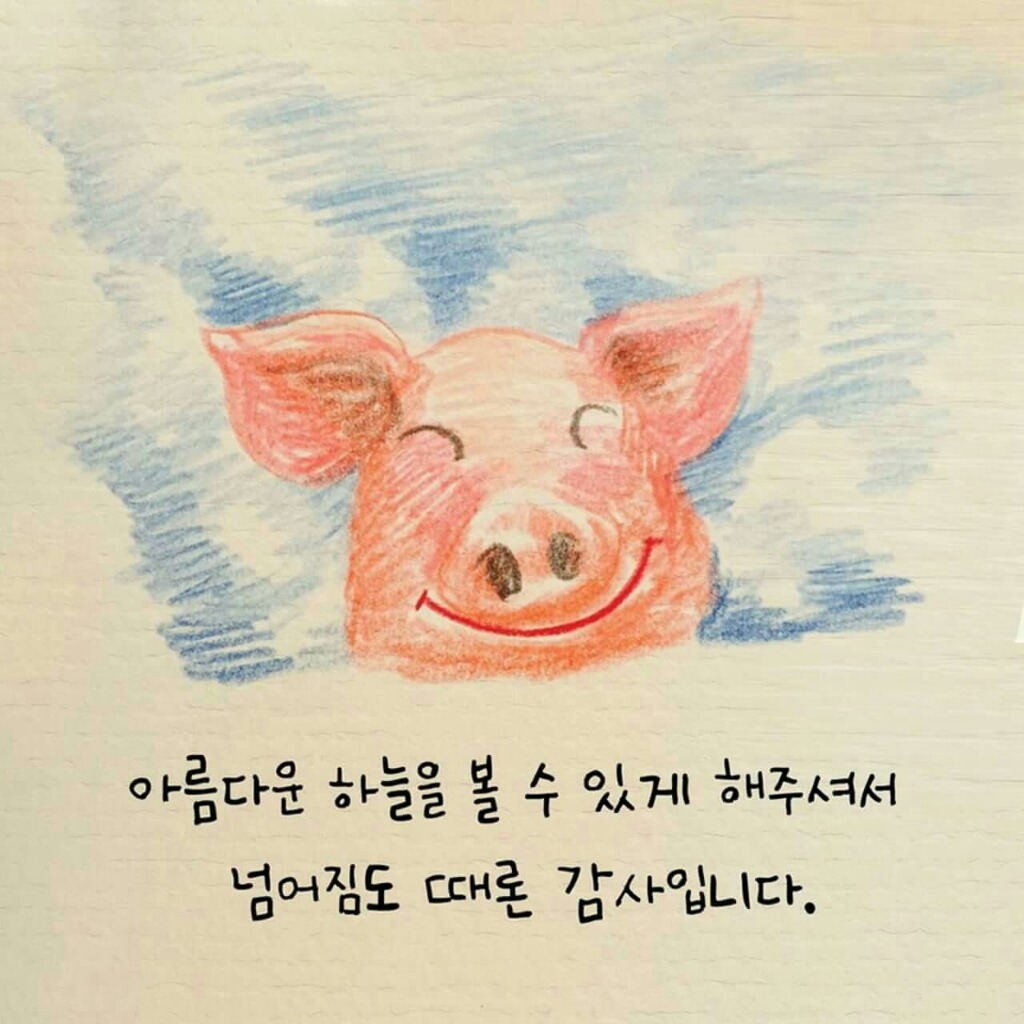 아름다운 하늘을 볼 수 있게 해주셔서
넘어짐도 때론 감사입니다.